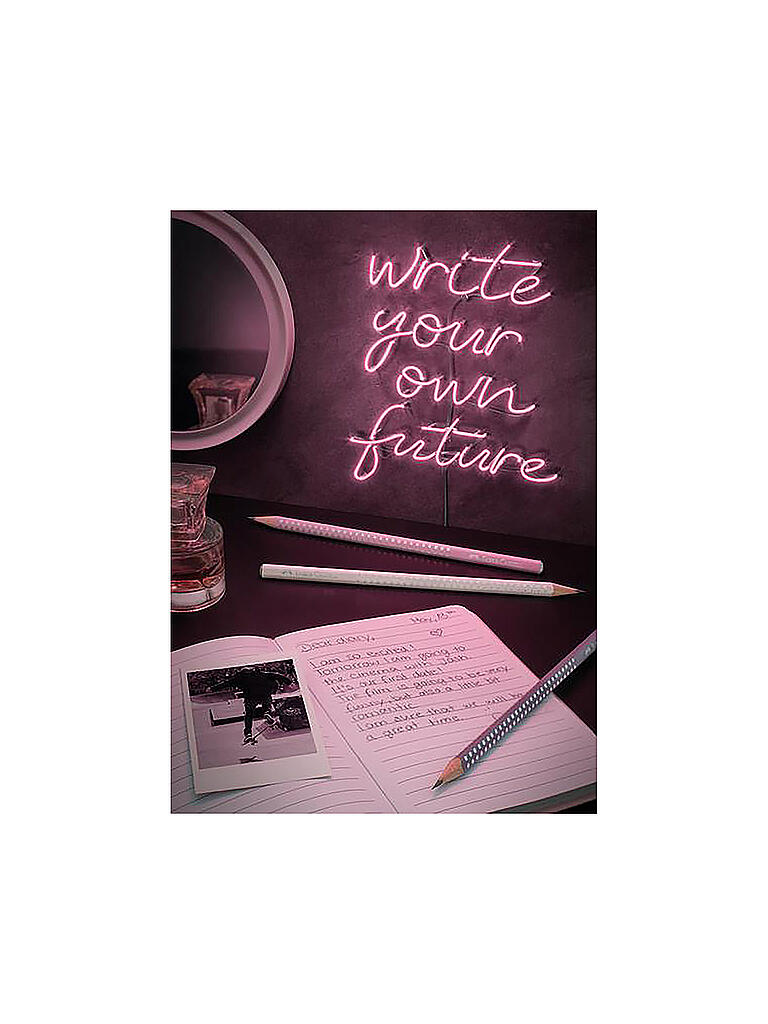 write
your
own
future
May, 13th
Dear diary,
I am so excited!
Tomorrow I am going to
the cinema with Josh.
It's our first date!
The film is going to be very
funny, but also a little bit
romantic.
I am sure that we will be
a great time.